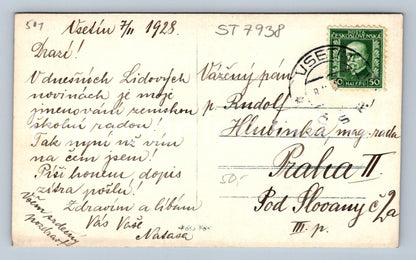 501
ST 7938
Vsetín 7/II 1928.
Drazí!
V dnešních Lidových
novinách je moje
jmenování zemskou
školní radou!
Tak nyní už vím
na čem jsem!
Píši honem, dopis
zítra pošlu!
Zdravím a líbám
Vás Vaše
Nataša
Všem srdečný
pozdrav!
ČESKOSLOVENSKO
50 50
HALÉŘŮ
VSETÍN
Vážený pán
p. Rudolf
Hlubinka mag. rada
Praha II
50,-
Pod Slovany č 2a
III. p.